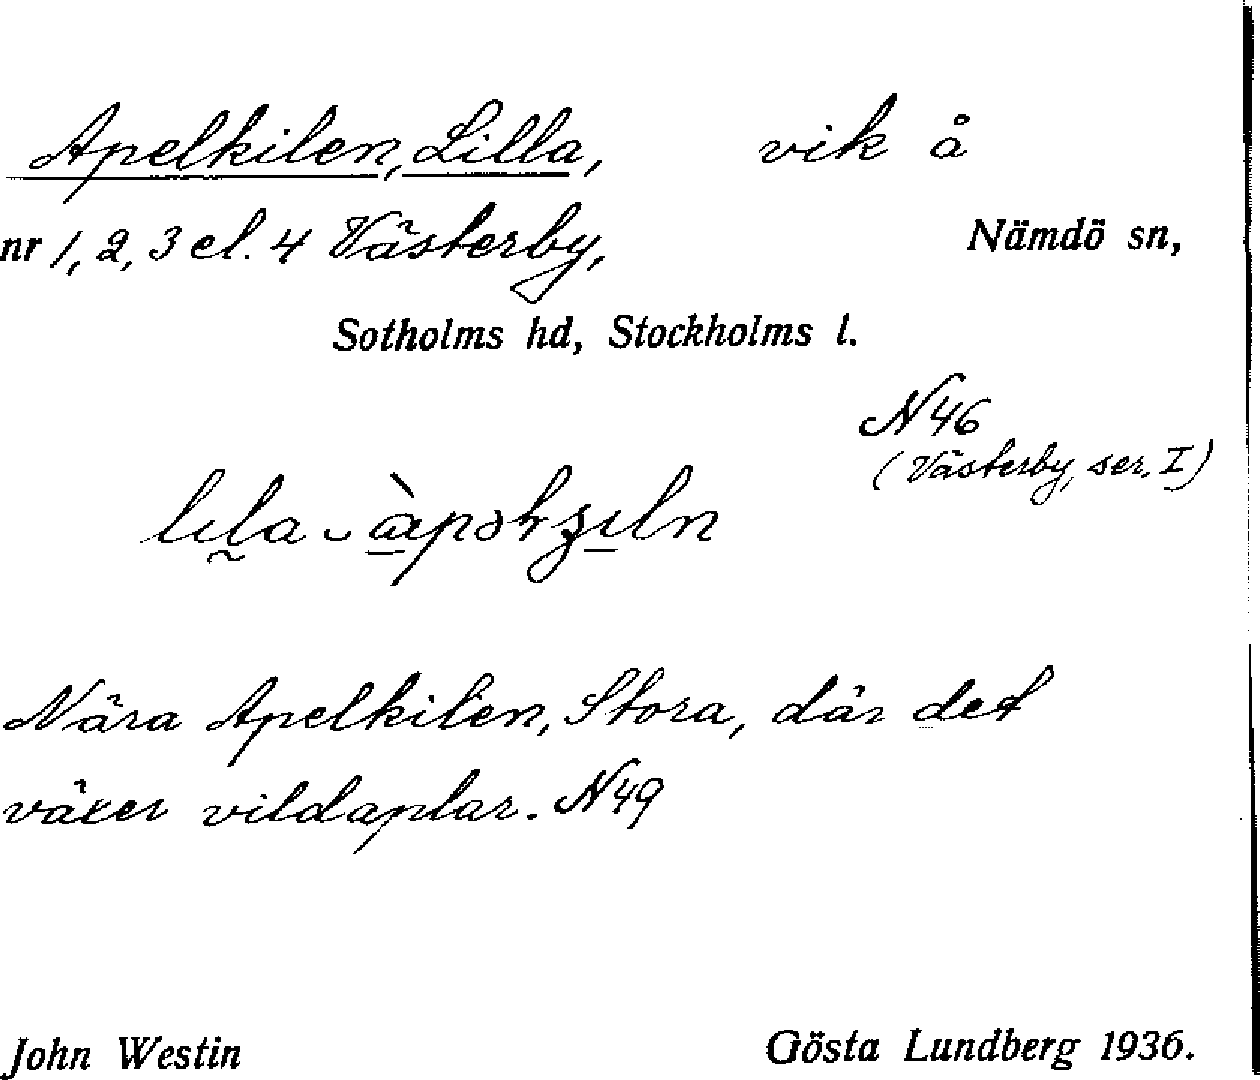 Apelkilen, Lilla, vik å
nr 1, 2, 3 el. 4 Västerby, Nämdö sn,
Sotholms hd, Stockholms l.
N46
(Västerby, ser. I)
Nära Apelkilen, Stora, där det
växer vildaplar. N49
John Westin Gösta Lundberg 1936.